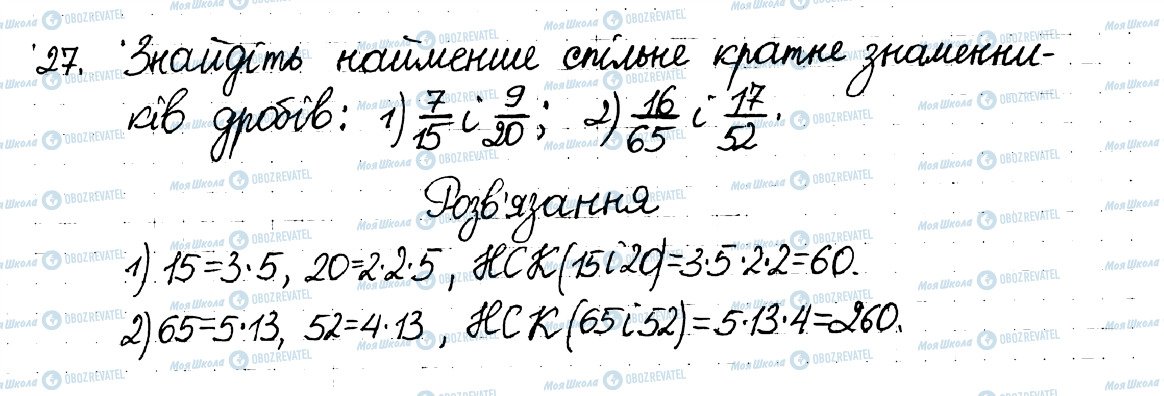 27. Знайдіть найменше спільне кратне знаменни-
ків дробів: 1) 7/15 і 9/20; 2) 16/65 і 17/52.
Розв'язання
1) 15=3·5, 20=2·2·5, НСК(15 і 20)=3·5·2·2=60.
2) 65=5·13, 52=4·13, НСК(65 і 52)=5·13·4=260.